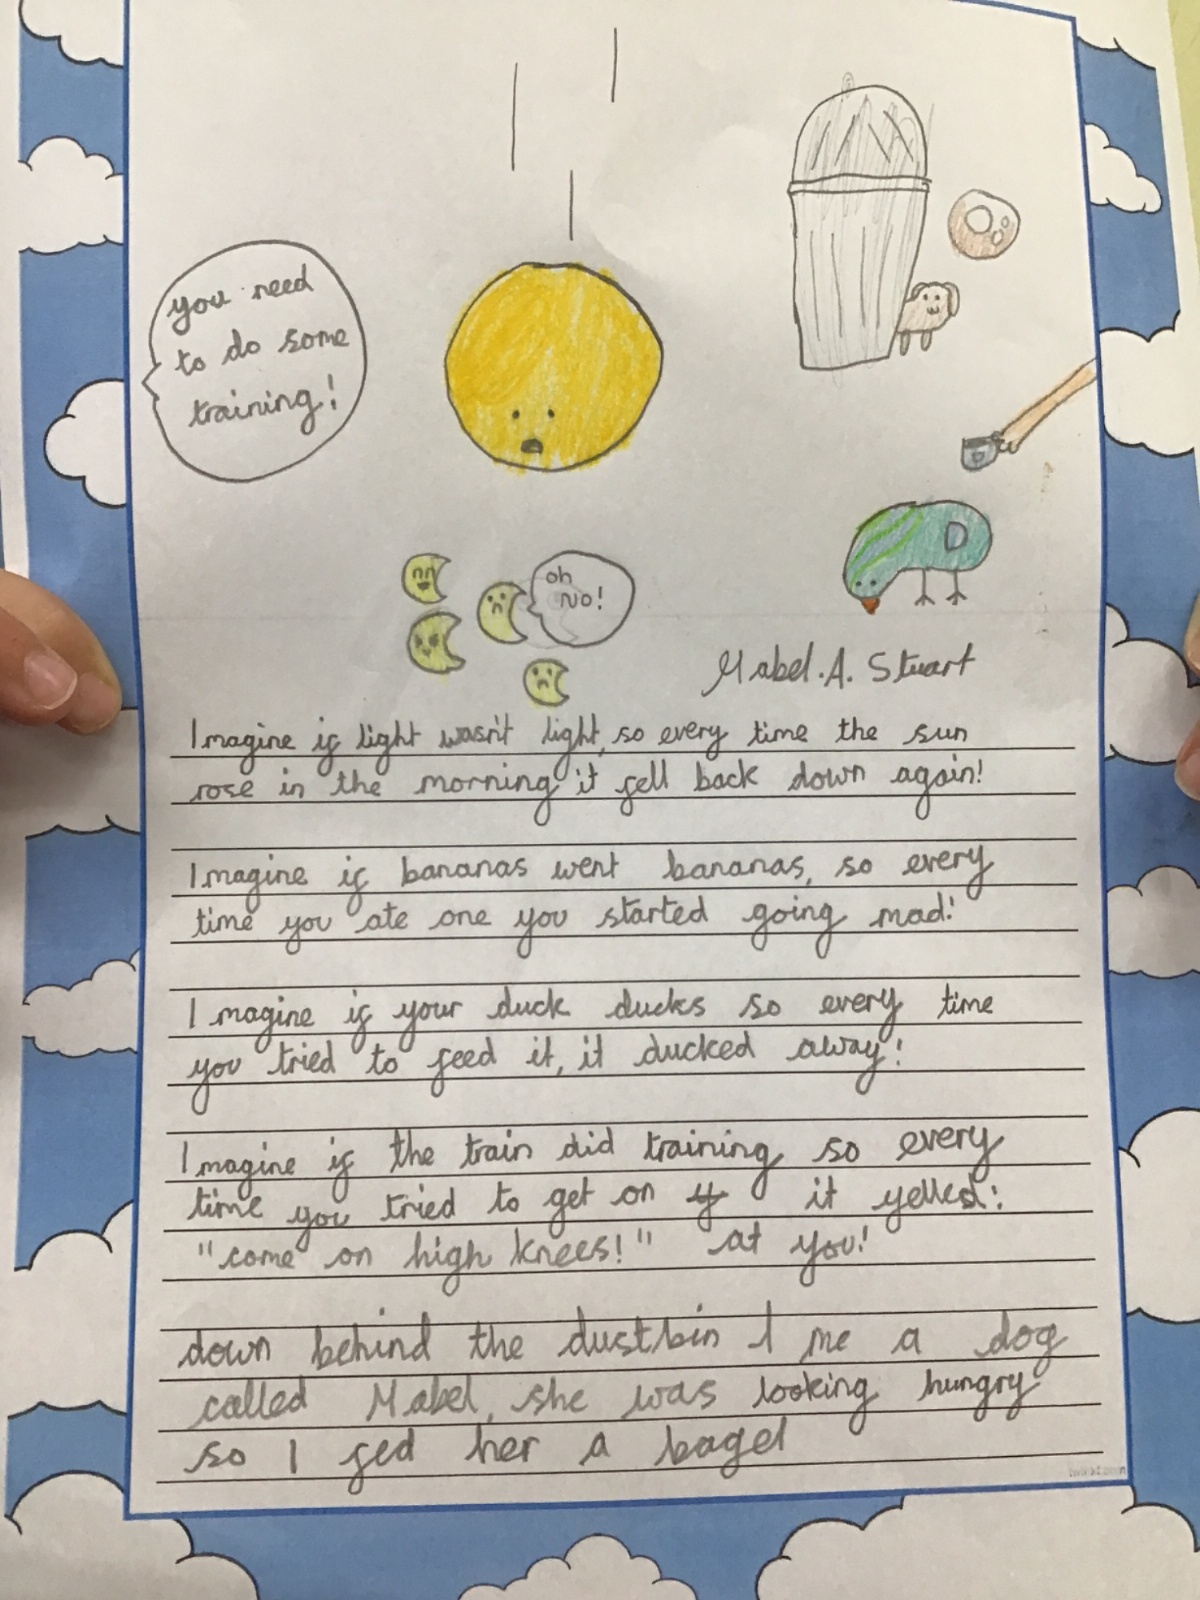 you need
to do some
training!
oh
No!
Mabel.A. Stuart
Imagine if light wasn't light, so every time the sun
rose in the morning it fell back down again!
Imagine if bananas went bananas, so every
time you ate one you started going mad!
Imagine if your duck ducks so every time
you tried to feed it, it ducked away!
Imagine if the train did training so every
time you tried to get on it yelled:
"come on high knees!" at you!
down behind the dustbin I me a dog
called Mabel, she was looking hungry
so I fed her a bagel